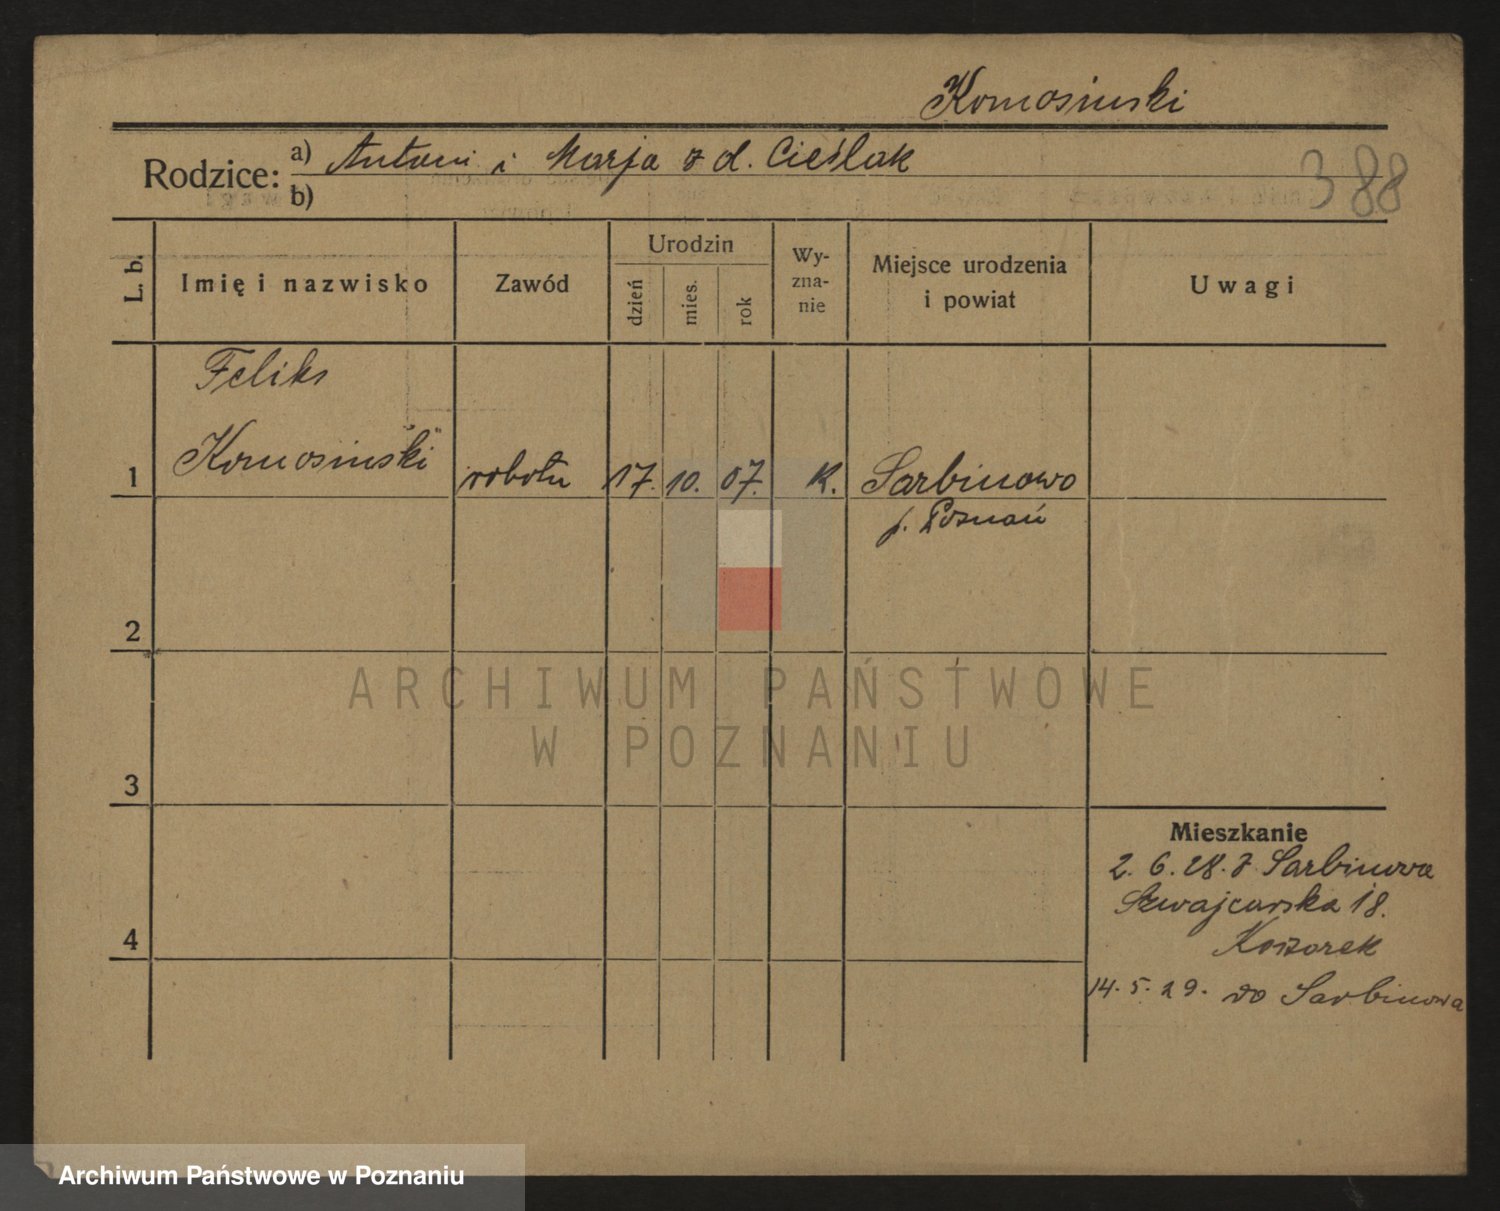 Komosinski
Rodzice: a) Antoni i Marja z d. Cieślak
b)
388
L. b.
Imię i nazwisko
Zawód
Urodzin
dzień
mies.
rok
Wy-
zna-
nie
Miejsce urodzenia
i powiat
Uwagi
Feliks
1 Komosinski robotn 17. 10. 07. K. Sarbinowo
p. Poznań
2
3
4
Mieszkanie
2. 6. 28. z Sarbinowa
Szwajcarska 18.
14. 5. 29. do Sarbinowa
ARCHIWUM PAŃSTWOWE
W POZNANIU
Archiwum Państwowe w Poznaniu